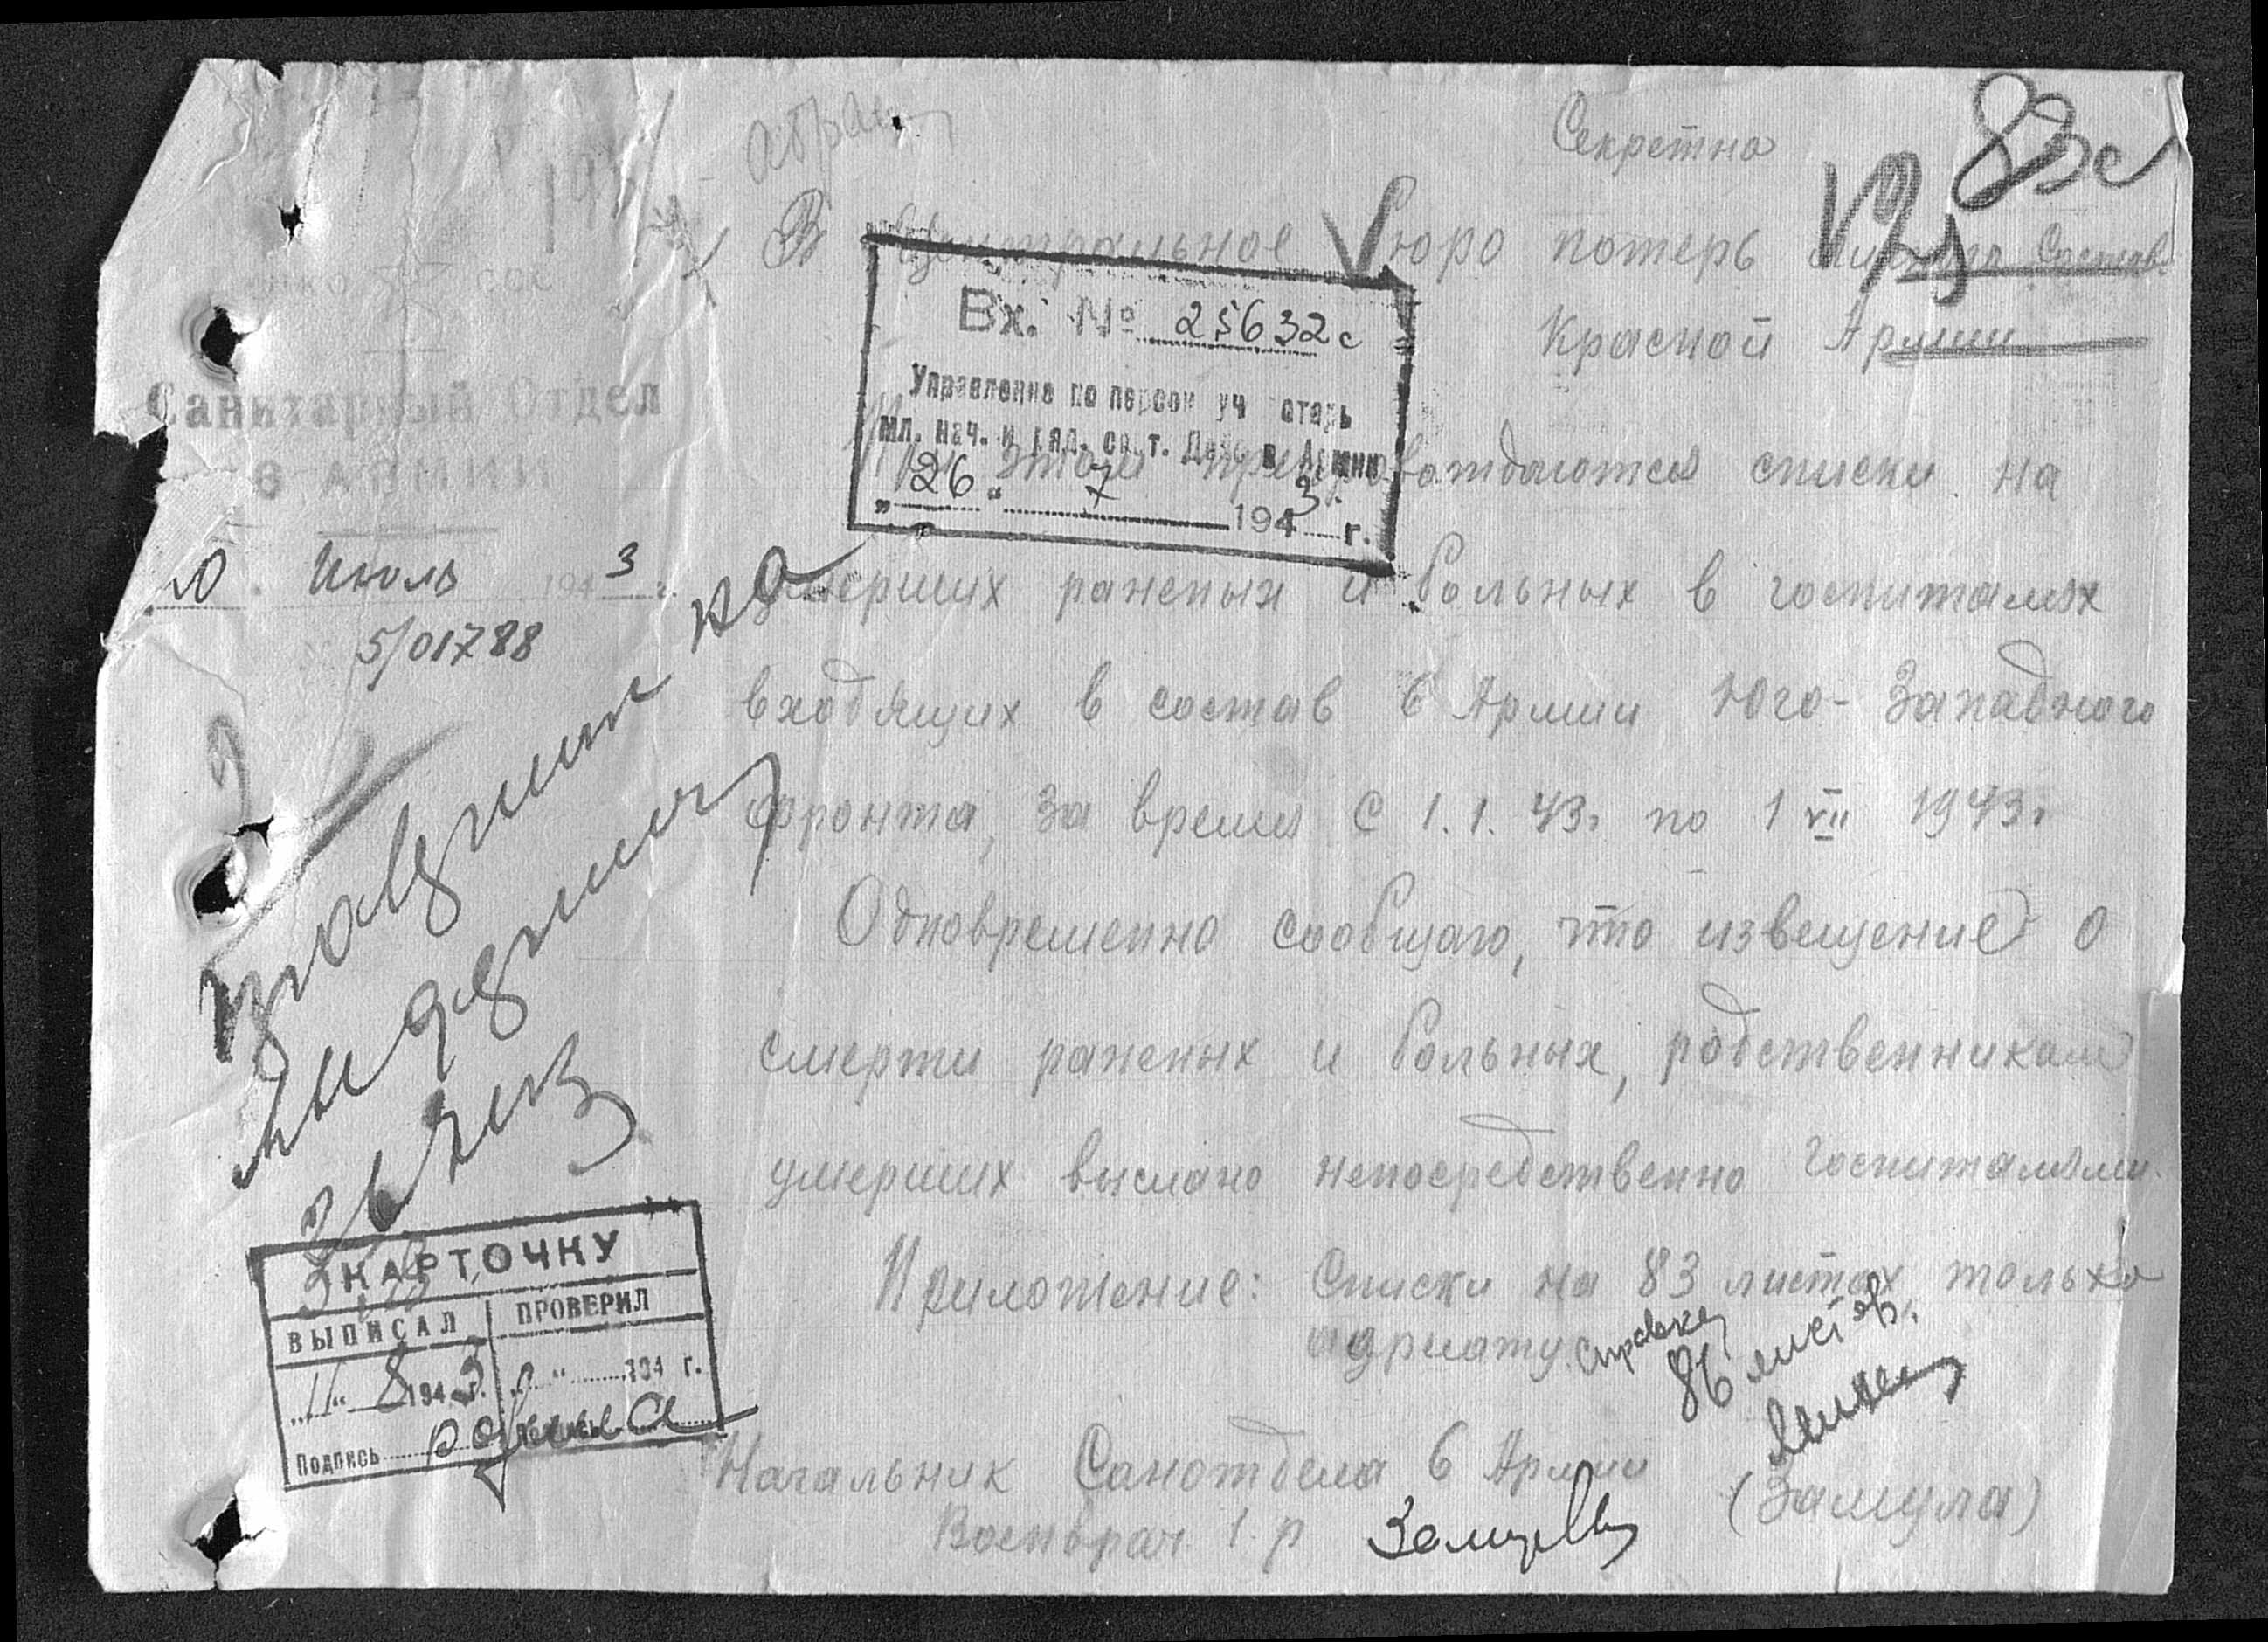 Секретно
83с
В Центральное Бюро потерь Состав.
Красной Армии
Вх. № 25632с
Управление по персон уч отерь
мл. нач. и ряд. сост. Действ Армии
„26" 7 1943 г.
Санитарный Отдел
6 АРМИИ
10 Июль 1943
5/01788
При этом препровождаются списки на
умерших раненых и больных в госпиталях
входящих в состав 6 Армии Юго-Западного
фронта, за время с 1.1.43г по 1 VII 1943г
Одновременно сообщаю, что извещение о
смерти раненых и больных, родственникам
умерших выслано непосредственно госпиталями.
Приложение: Списки на 83 листах только
адресату.
86 листов.
КАРТОЧКУ
ВЫПИСАЛ ПРОВЕРИЛ
„11" 8 1943 г. „ " 194 г.
Подпись
Начальник Санотдела 6 Армии
Военврач 1 р (Замула)